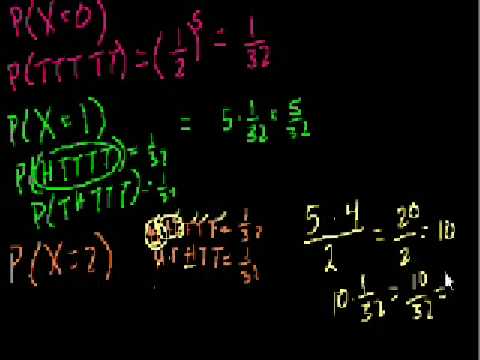 P(X=0)
P(TTTTT) = (1/2)^5 = 1/32
P(X=1) = 5·1/32 = 5/32
P(HTTTT) = 1/32
P(THTTT) = 1/32
P(X=2)
TTT = 1/32
HTHTT = 1/32
5·4/2 = 20/2 = 10
10·1/32 = 10/32 =